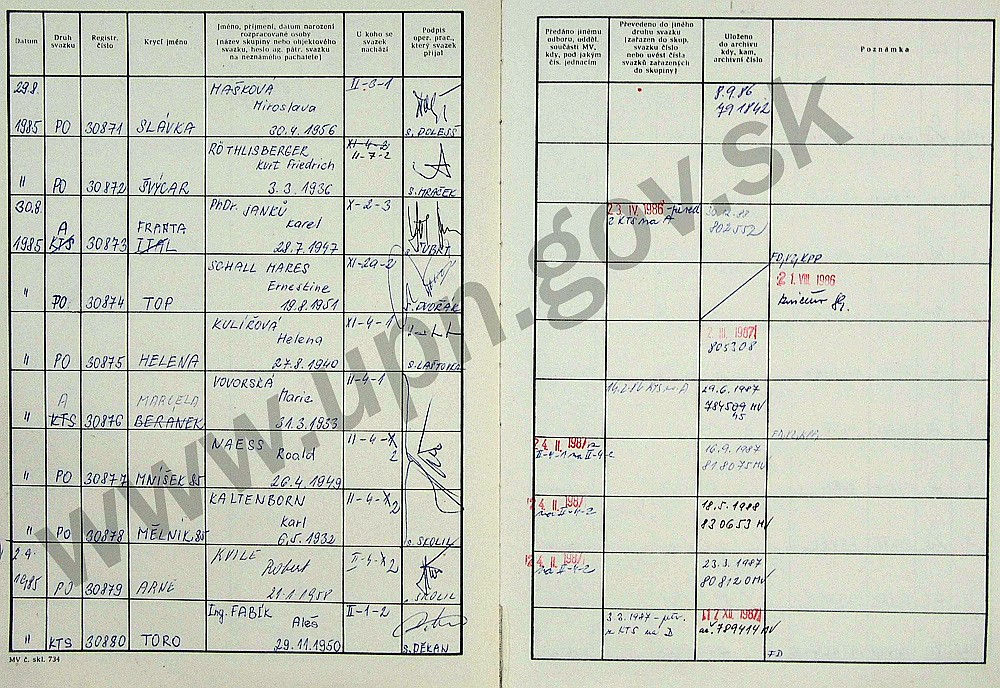 Datum
Druh svazku
Registr. číslo
Krycí jméno
Jméno, příjmení, datum narození
rozpracované osoby
(název skupiny nebo objektového
svazku, heslo ag. pátr. svazku
na neznámého pachatele)
U koho se svazek nachází
Podpis oper. prac., který svazek přijal
Předáno jinému
odboru, odděl.
součásti MV,
kdy, pod jakým
čís. jednacím
Převedeno do jiného
druhu svazku
(zařazen do skup.
svazku číslo
nebo uvést čísla
svazků zařazených
do skupiny)
Uloženo
do archivu
kdy, kam,
archivní číslo
Poznámka
29.8. MAŠKOVÁ II-3-1
Miroslava
1985 PO 30871 SLÁVKA 30.4.1956 s. DOLEJŠ
8.9.86
791842
RÖTHLISBERGER XI-4-2
Kurt Friedrich II-7-2
" PO 30872 ŠVÝCAR 3.3.1936 s. MRÁČEK
30.8. PhDr. JANKŮ X-2-3
A FRANTA Karel
1985 KTS 30873 ITAL 28.7.1947
23. IV. 1986
z KTS na A
30.12.88
802552
SCHALL MARES XI-2a-2
Ernestine
" PO 30874 TOP 19.8.1951 s. DVOŘÁK
21. VIII. 1986
KULÍŘOVÁ XI-4-1
Helena
" PO 30875 HELENA 27.8.1940
2. III. 1987
805308
VOVORSKÁ II-4-1
A MARCELA Marie
" KTS 30876 BERÁNEK 31.3.1933
29.6.1987
784509 MV
45
NAESS II-4-X
Roald 2
" PO 30877 MNÍŠEK 85 26.4.1949
24. II. 1987
II-4-1 na II-4-2
16.9.1987
818075 MV
KALTENBORN II-4-X2
Karl
" PO 30878 MĚLNÍK 85 6.5.1932 s. SKOLIL
24. II. 1987
na II-4-2
18.5.1988
830653 MV
2.9. KVILE II-4-X2
Robert
1985 PO 30879 ARNE 21.1.1958 s. SKOLIL
24. II. 1987
na II-4-2
23.3.1987
808120 MV
Ing. FABÍK II-1-2
Aleš
" KTS 30880 TORO 29.11.1950 s. DĚKAN
3.3.1987
z KTS na D
XII. 1987
789414 MV
FD
MV č. skl. 734
www.upn.gov.sk